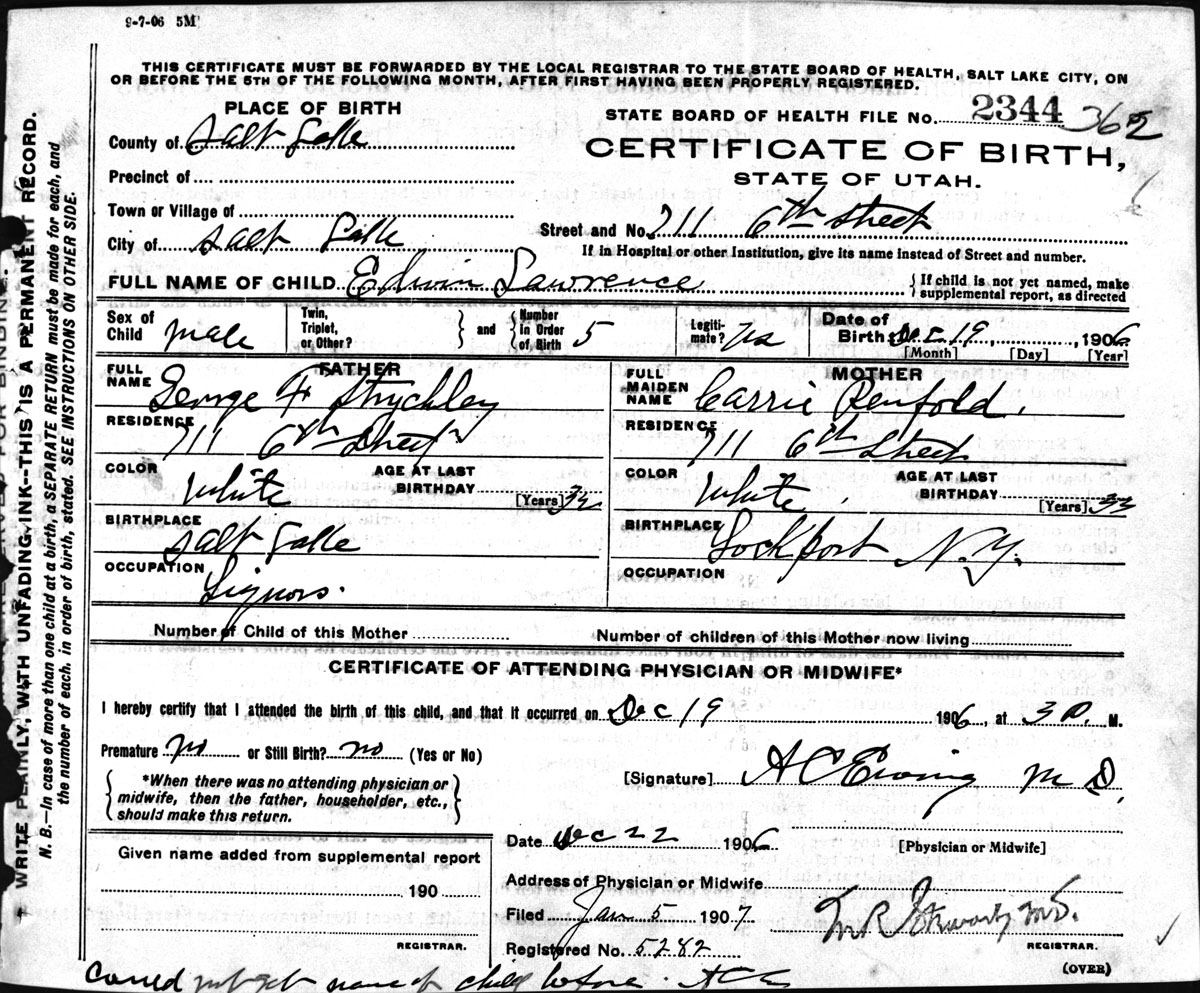 9-7-06 5M
THIS CERTIFICATE MUST BE FORWARDED BY THE LOCAL REGISTRAR TO THE STATE BOARD OF HEALTH, SALT LAKE CITY, ON
OR BEFORE THE 5TH OF THE FOLLOWING MONTH, AFTER FIRST HAVING BEEN PROPERLY REGISTERED.
PLACE OF BIRTH
County of Salt Lake
Precinct of
Town or Village of
City of Salt Lake
STATE BOARD OF HEALTH FILE No. 2344 362
CERTIFICATE OF BIRTH,
STATE OF UTAH.
Street and No. 711 6th Street
If in Hospital or other Institution, give its name instead of Street and number.
FULL NAME OF CHILD Edwin Lawrence
{ If child is not yet named, make
supplemental report, as directed
Sex of Child male
Twin, Triplet, or Other? } and { Number in Order of Birth 5
Legiti-mate? Yes
Date of Birth Dec 19, 1906
[Month] [Day] [Year]
FATHER
FULL NAME George F Strychley
RESIDENCE 711 6th Street
COLOR White AGE AT LAST BIRTHDAY [Years]
BIRTHPLACE Salt Lake
OCCUPATION Liquors.
MOTHER
FULL MAIDEN NAME Carrie Penfold.
RESIDENCE 711 6th Street
COLOR White AGE AT LAST BIRTHDAY [Years] 33
BIRTHPLACE Lockport N.Y.
OCCUPATION
Number of Child of this Mother Number of children of this Mother now living
CERTIFICATE OF ATTENDING PHYSICIAN OR MIDWIFE*
I hereby certify that I attended the birth of this child, and that it occurred on Dec 19 1906, at 3 P. M.
Premature no or Still Birth? no (Yes or No)
{ *When there was no attending physician or
midwife, then the father, householder, etc.,
should make this return. }
[Signature] A C Ewing M D.
Given name added from supplemental report
190
REGISTRAR.
Date Dec 22 1906
[Physician or Midwife]
Address of Physician or Midwife
Filed Jan 5 1907
M.D.
Registered No. 5282
REGISTRAR.
(OVER)
Could not get name of child before.
WRITE PLAINLY, WITH UNFADING INK--THIS IS A PERMANENT RECORD.
N. B.—In case of more than one child at a birth, a SEPARATE RETURN must be made for each, and
the number of each, in order of birth, stated. SEE INSTRUCTIONS ON OTHER SIDE.